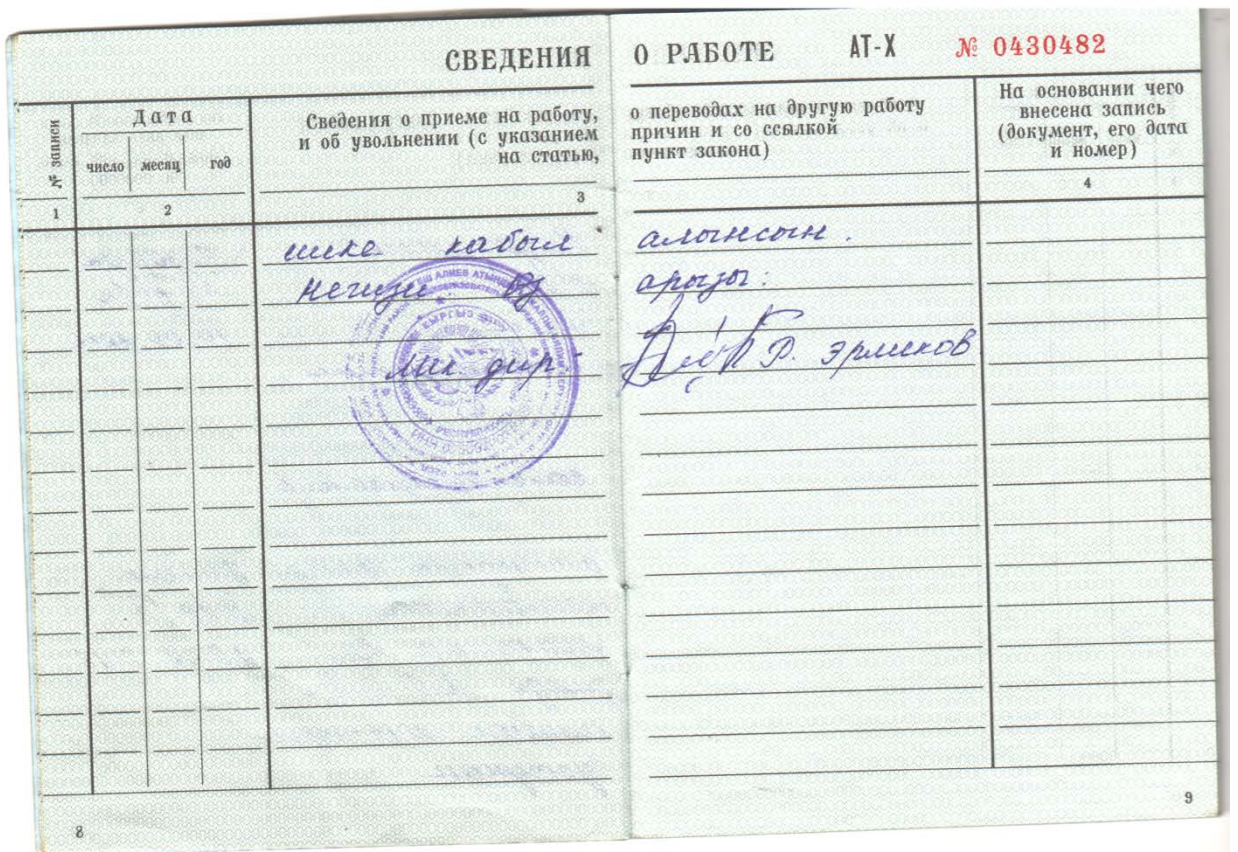 СВЕДЕНИЯ О РАБОТЕ АТ-X № 0430482
№ записи
Дата
число месяц год
Сведения о приеме на работу,
и об увольнении (с указанием
на статью,
о переводах на другую работу
причин и со ссылкой
пункт закона)
На основании чего
внесена запись
(документ, его дата
и номер)
1 2 3 4
ишке кабыл алынсын.
Негизи өз арызы:
Мек дир Р. Эрмеков
КЫРГЫЗ
8
9